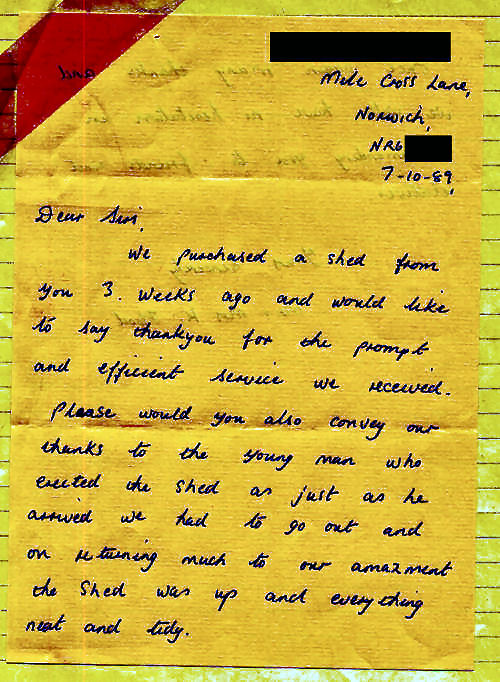 Mile Cross Lane,
Norwich,
NR6
7-10-89,
Dear Sir,
We purchased a shed from
you 3. weeks ago and would like
to say thankyou for the prompt
and efficient service we received.
Please would you also convey our
thanks to the young man who
erected the shed as just as he
arrived we had to go out and
on returning much to our amazment
the Shed was up and everything
neat and tidy.